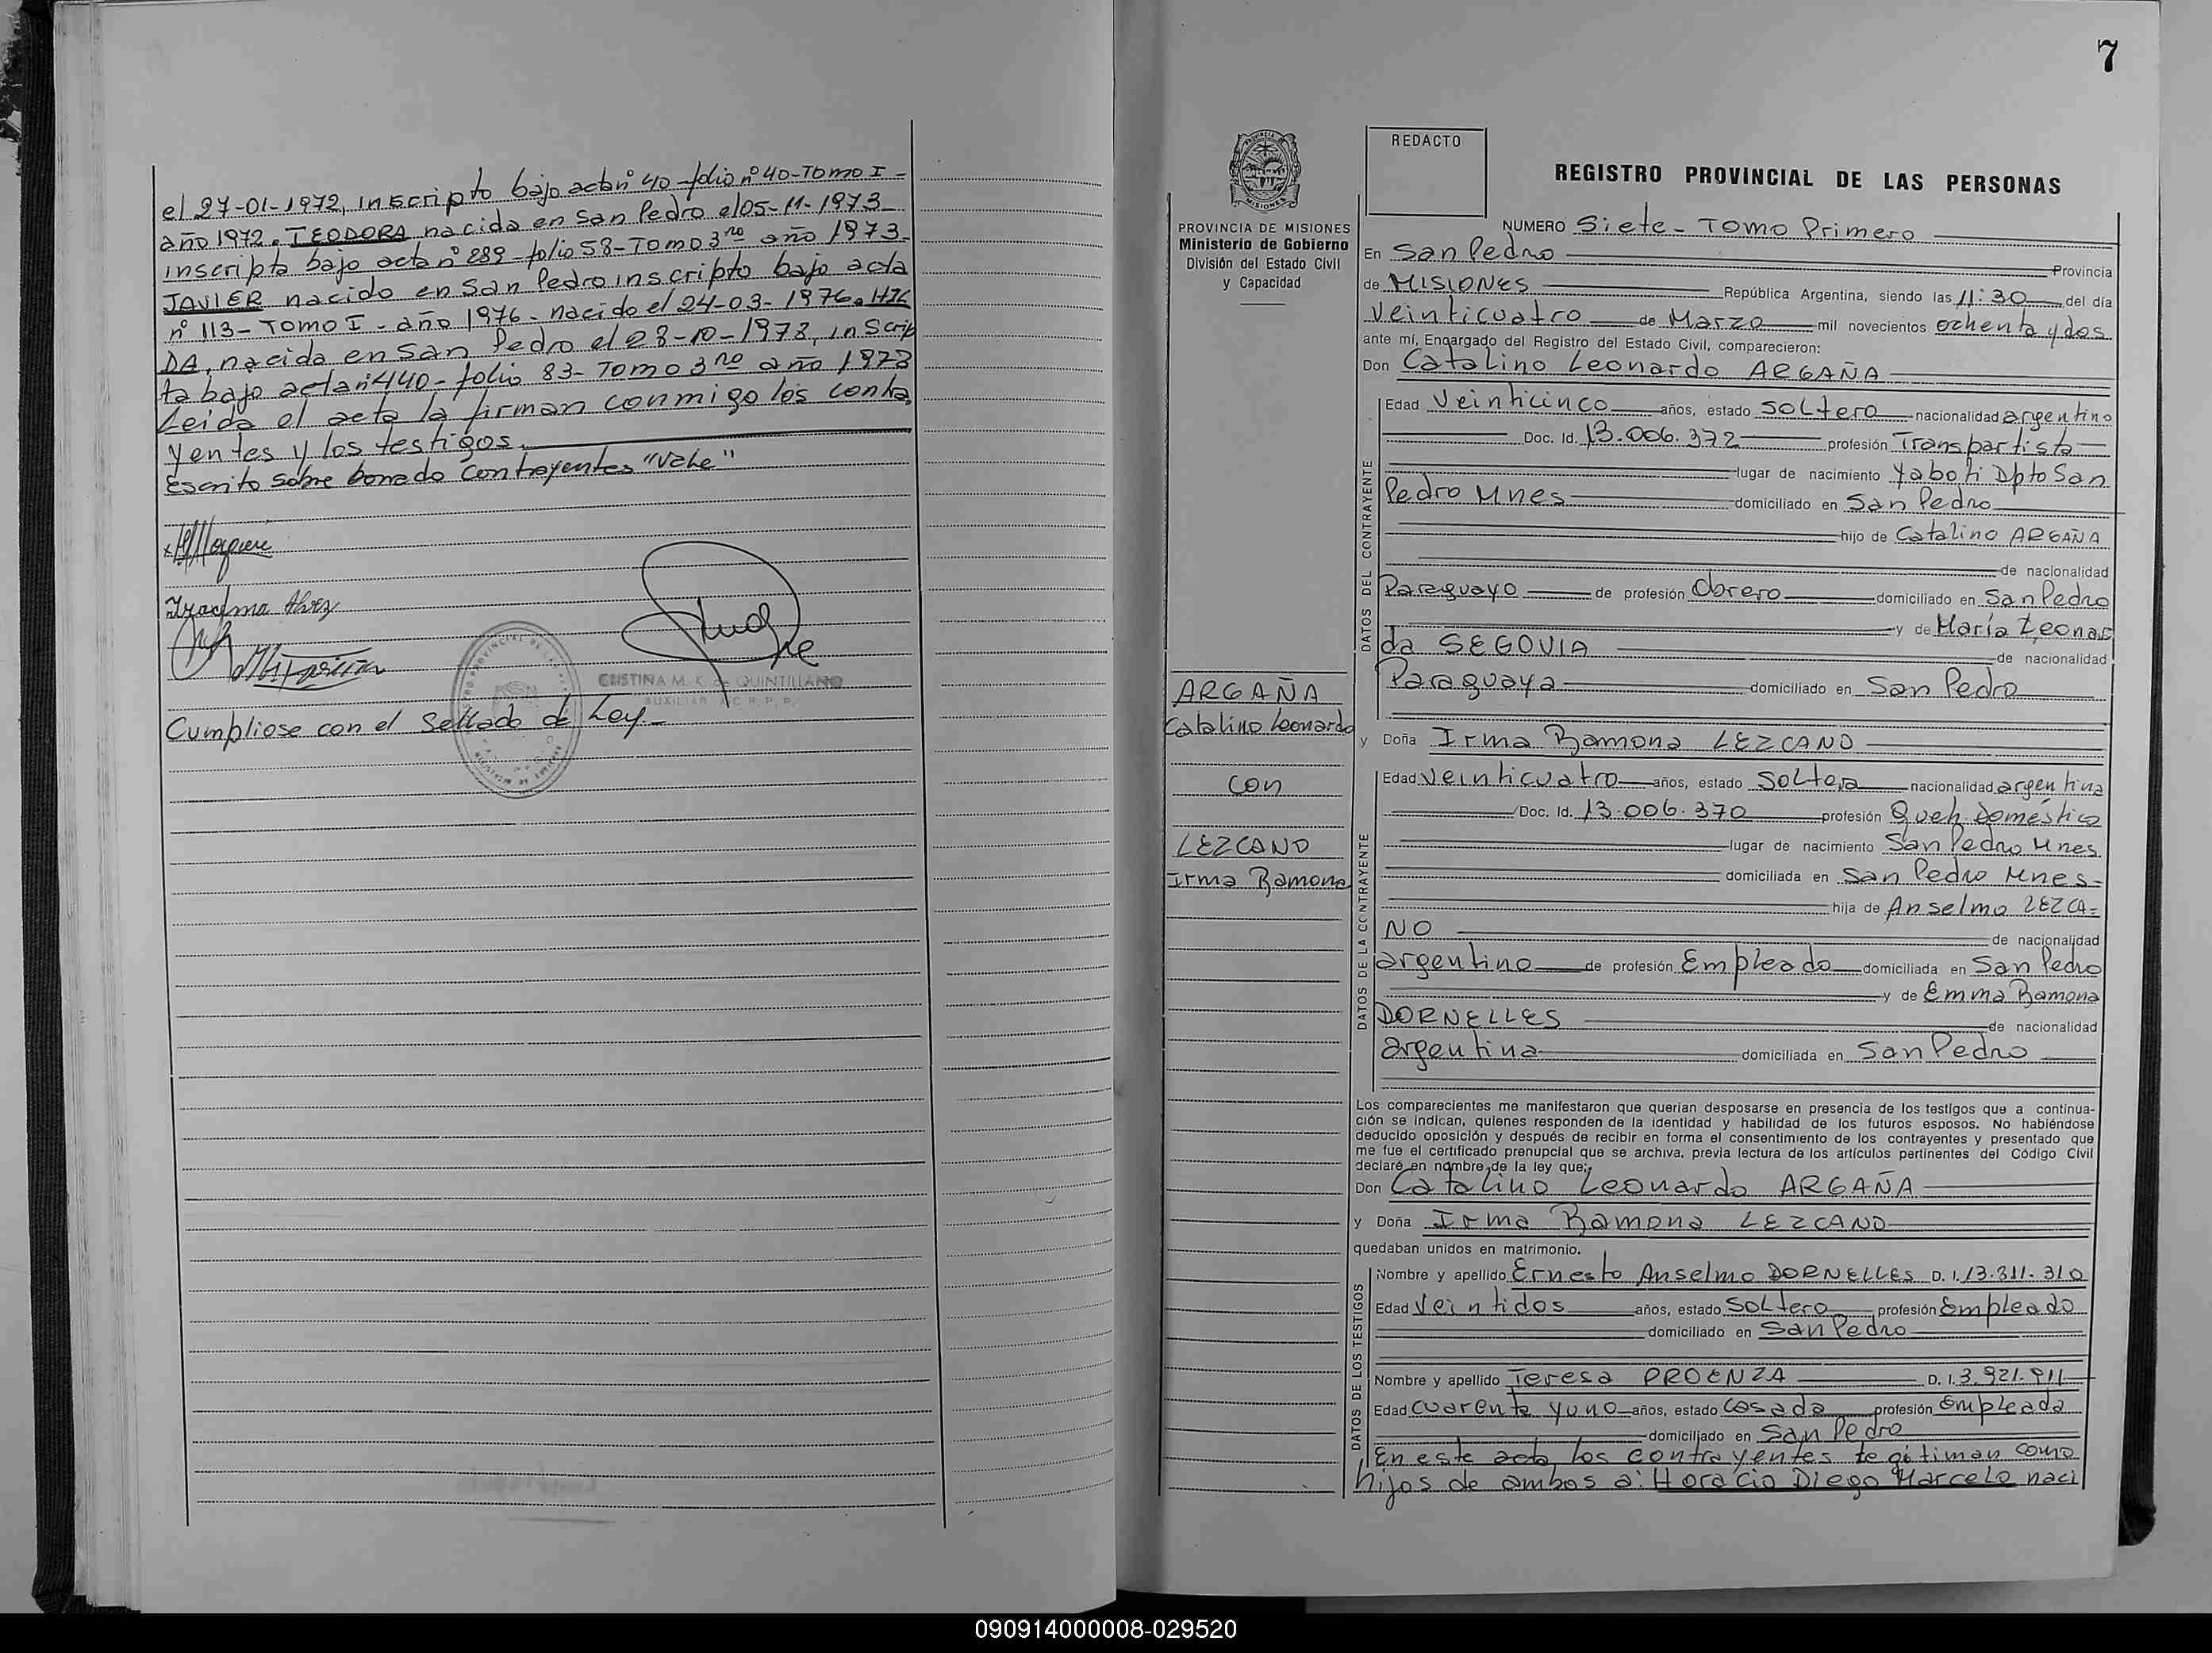 el 27-01-1972, inscripto bajo acta nº 40-folio nº 40-Tomo I-
año 1972. TEODORA nacida en San Pedro el 05-11-1973
inscripta bajo acta nº 289-folio 58-Tomo 3ro año 1973.
JAVIER nacido en San Pedro inscripto bajo acta
nº 113-Tomo I-año 1976-nacido el 24-03-1976.
DA, nacida en San Pedro el 28-10-1978, inscrip
ta bajo acta nº 440-folio 83-Tomo 3ro año 1978
Leida el acta la firman conmigo los contra
yentes y los testigos.
Escrito sobre borrado contrayentes "Vale"
CRISTINA M. K. de QUINTILLANO
AUXILIAR
Cumpliose con el Sellado de Ley-
7
REDACTO
REGISTRO PROVINCIAL DE LAS PERSONAS
PROVINCIA DE MISIONES
Ministerio de Gobierno
División del Estado Civil
y Capacidad
ARGAÑA
Catalino Leonardo
con
LEZCANO
Irma Ramona
NUMERO Siete-Tomo Primero
En San Pedro Provincia
de MISIONES República Argentina, siendo las 11:30 del día
Veinticuatro de Marzo mil novecientos ochenta y dos
ante mí, Encargado del Registro del Estado Civil, comparecieron:
Don Catalino Leonardo ARGAÑA
DATOS DEL CONTRAYENTE
Edad Veinticinco años, estado soltero nacionalidad argentino
Doc. Id. 13.006.372 profesión Transportista
lugar de nacimiento Yaboti Dpto San
Pedro Mnes domiciliado en San Pedro
hijo de Catalino ARGAÑA
de nacionalidad
Paraguayo de profesión Obrero domiciliado en San Pedro
y de María Leonar
da SEGOVIA de nacionalidad
Paraguaya domiciliado en San Pedro
y Doña Irma Ramona LEZCANO
DATOS DE LA CONTRAYENTE
Edad Veinticuatro años, estado Soltera nacionalidad argentina
Doc. Id. 13.006.370 profesión Queh. Doméstico
lugar de nacimiento San Pedro Mnes
domiciliada en San Pedro Mnes-
hija de Anselmo LEZCA=
NO de nacionalidad
argentino de profesión Empleado domiciliada en San Pedro
y de Emma Ramona
DORNELLES de nacionalidad
argentina domiciliada en San Pedro
Los comparecientes me manifestaron que querían desposarse en presencia de los testigos que a continua-
ción se indican, quienes responden de la identidad y habilidad de los futuros esposos. No habiéndose
deducido oposición y después de recibir en forma el consentimiento de los contrayentes y presentado que
me fue el certificado prenupcial que se archiva, previa lectura de los artículos pertinentes del Código Civil
declaré en nombre de la ley que:
Don Catalino Leonardo ARGAÑA
y Doña Irma Ramona LEZCANO
quedaban unidos en matrimonio.
DATOS DE LOS TESTIGOS
Nombre y apellido Ernesto Anselmo DORNELLES D. I. 13.311.310
Edad Veintidos años, estado Soltero profesión Empleado
domiciliado en San Pedro
Nombre y apellido Teresa PROENZA D. I. 3.921.911
Edad cuarenta y uno años, estado Casada profesión Empleada
domiciliado en San Pedro
En este acto los contrayentes legitiman como
hijos de ambos a: Horacio Diego Marcelo naci
090914000008-029520